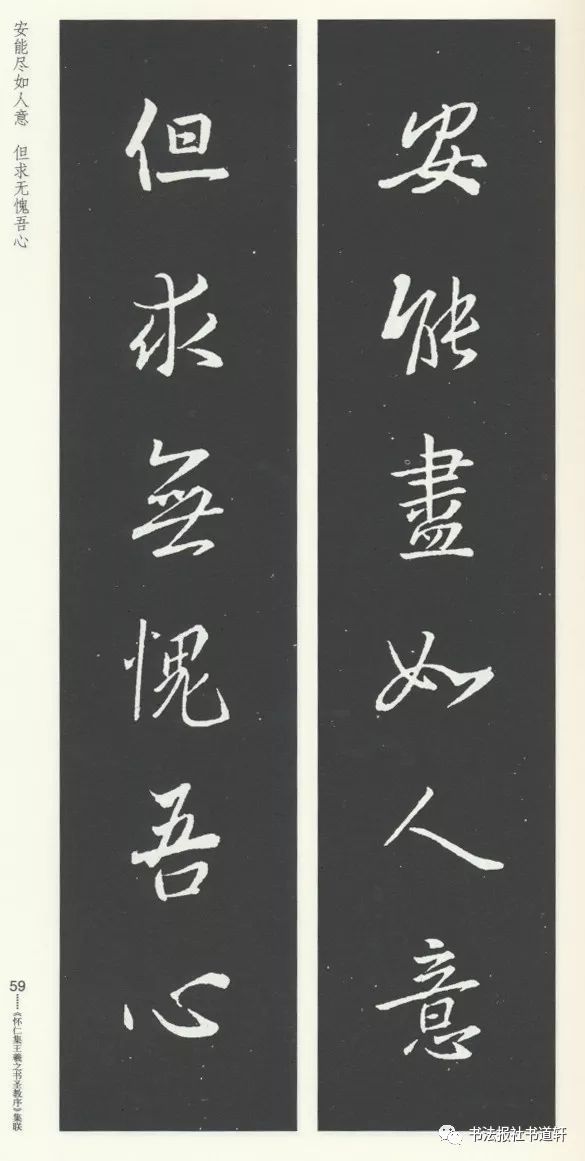 安能盡如人意
但求無愧吾心
安能尽如人意 但求无愧吾心
59……《怀仁集王羲之书圣教序》集联
书法报社书道轩